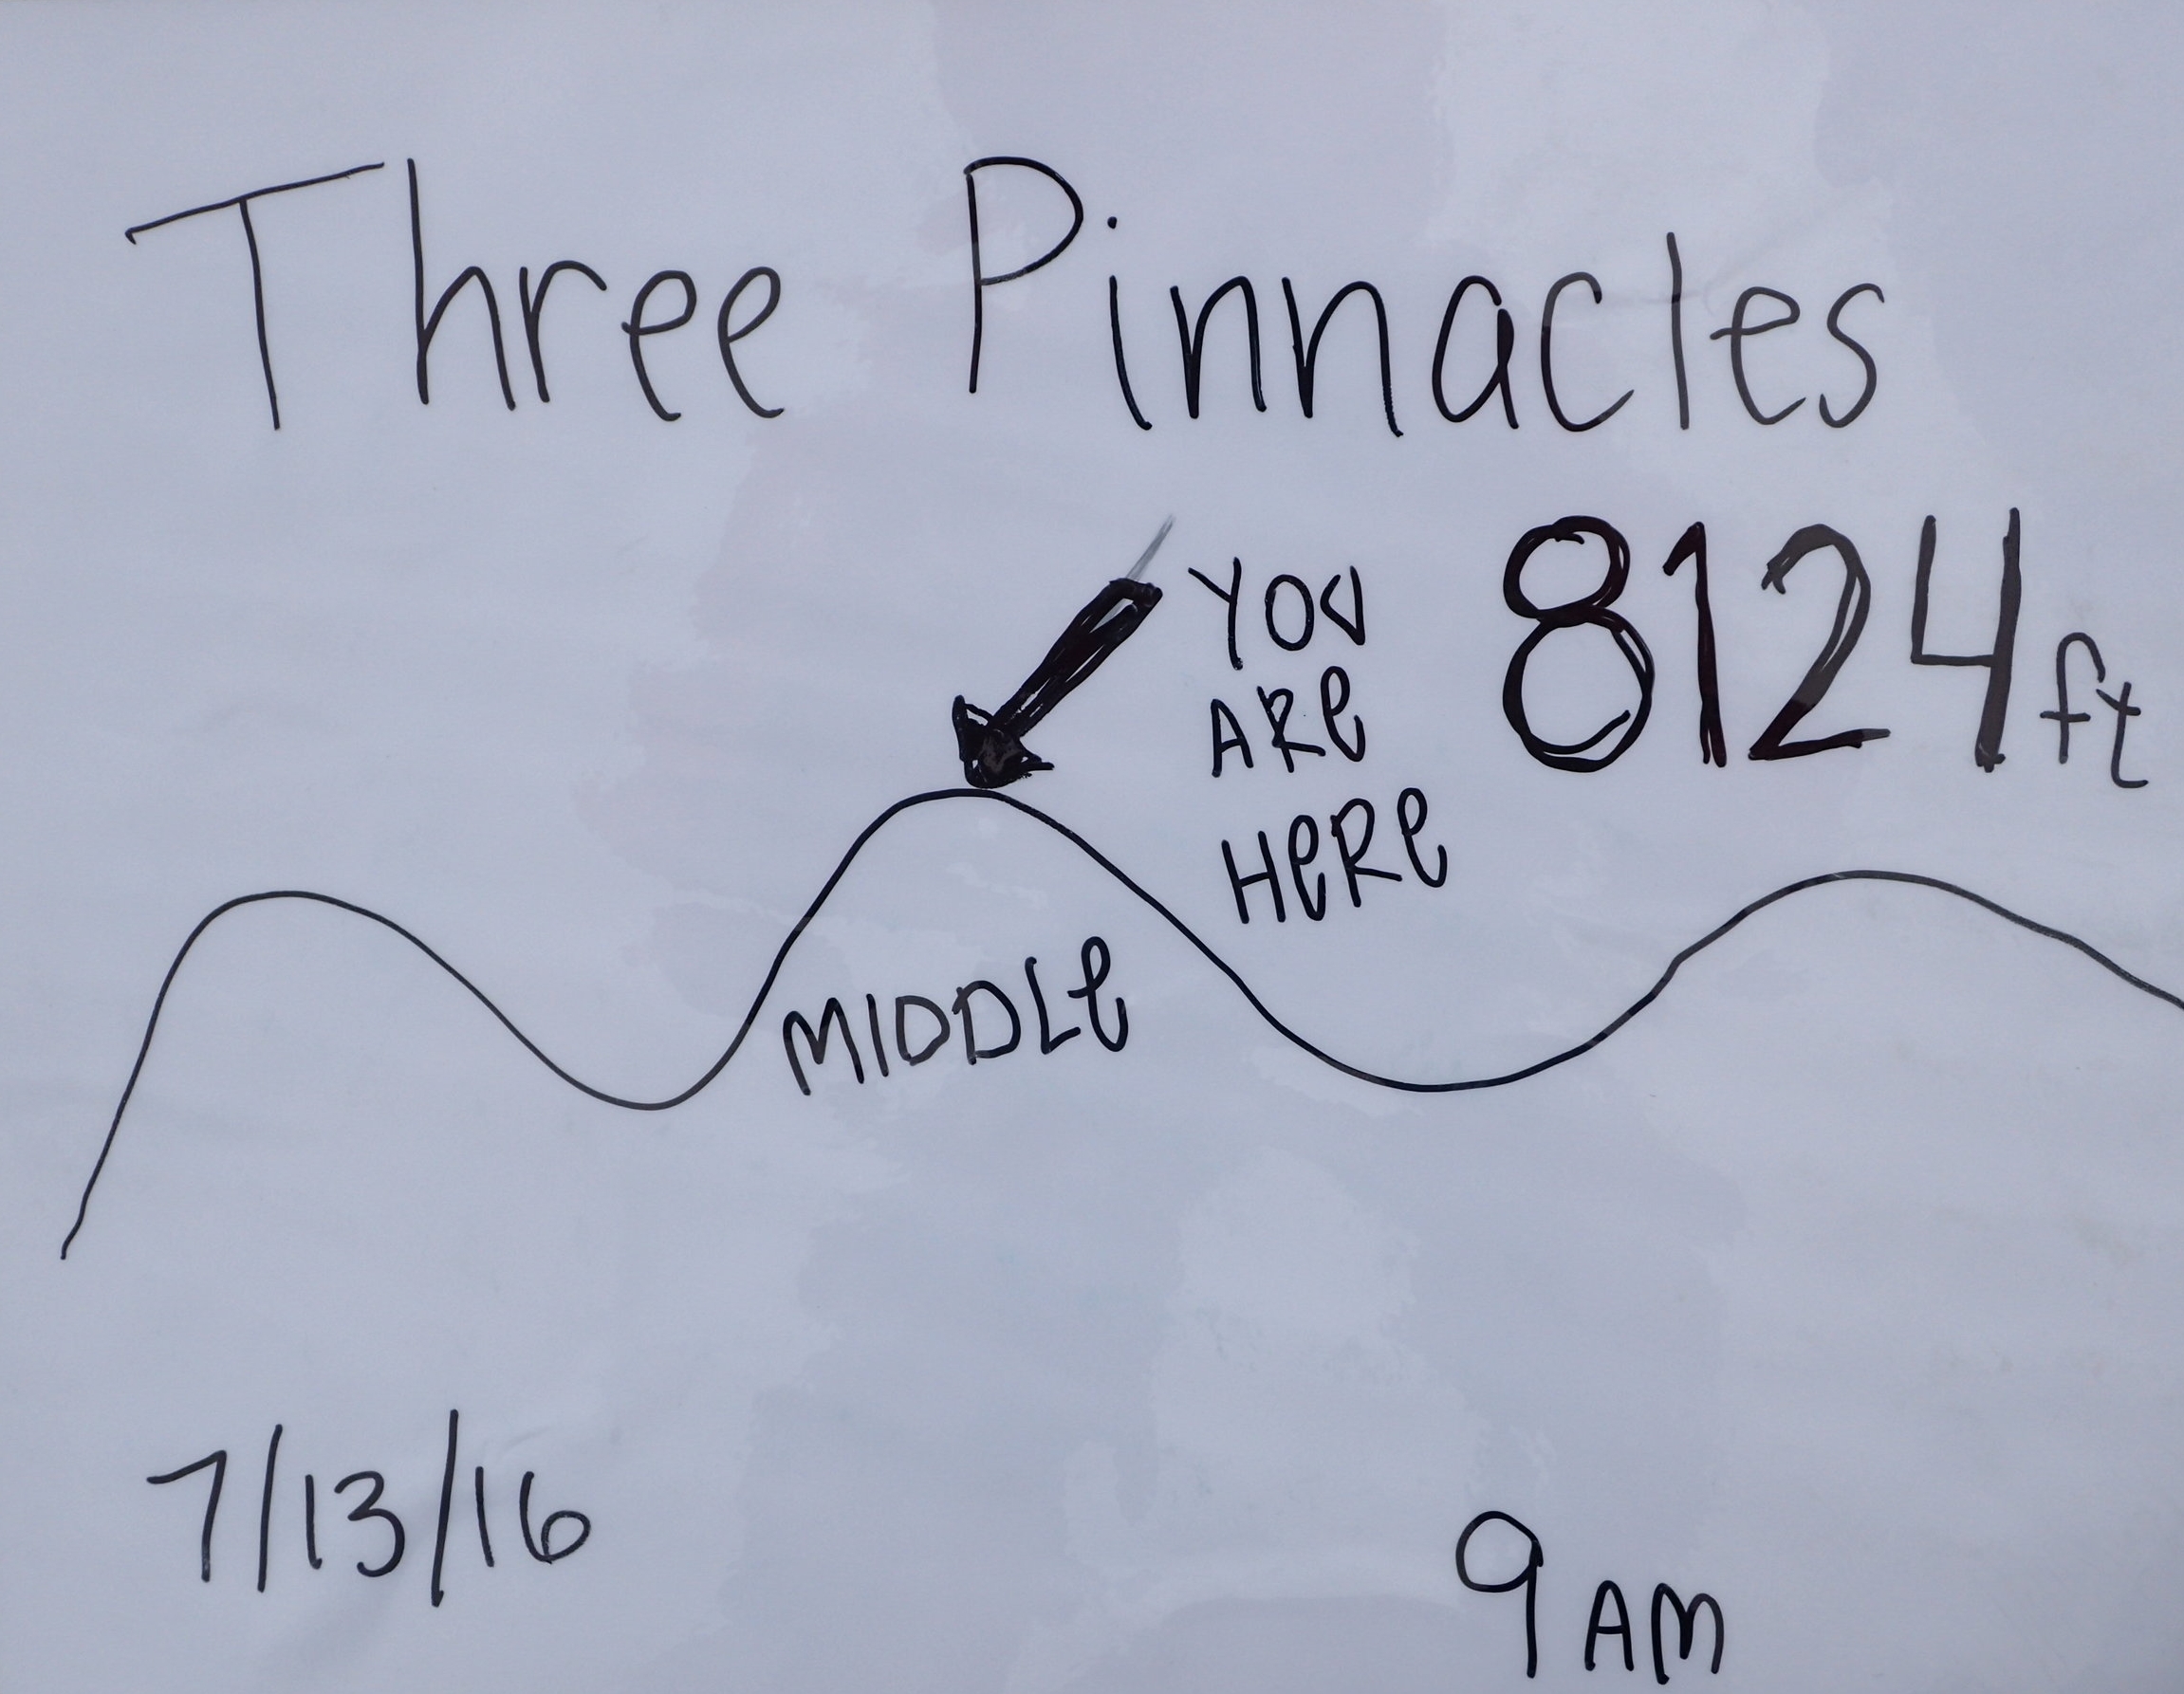 Three Pinnacles
YOU
ARe
HeRe
8124 ft
MIDDLe
7/13/16
9 AM